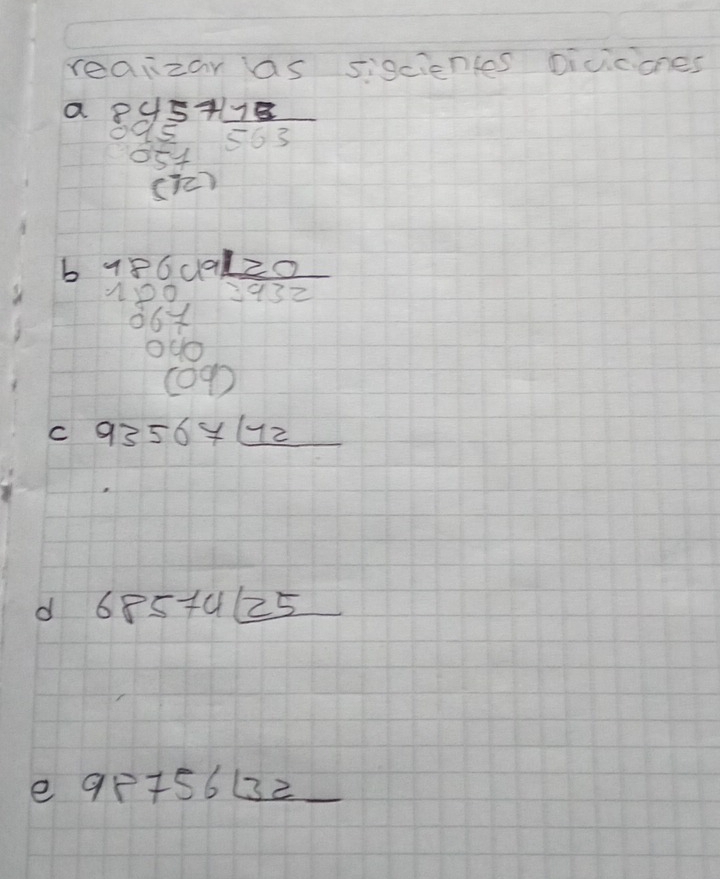 reaiizar las sigcientes Diviciones
a 8457 15
095 563
057
(12)
b 20
180 3932
067
040
(09)
c 93567 12
d 68574 25
e 98756 32